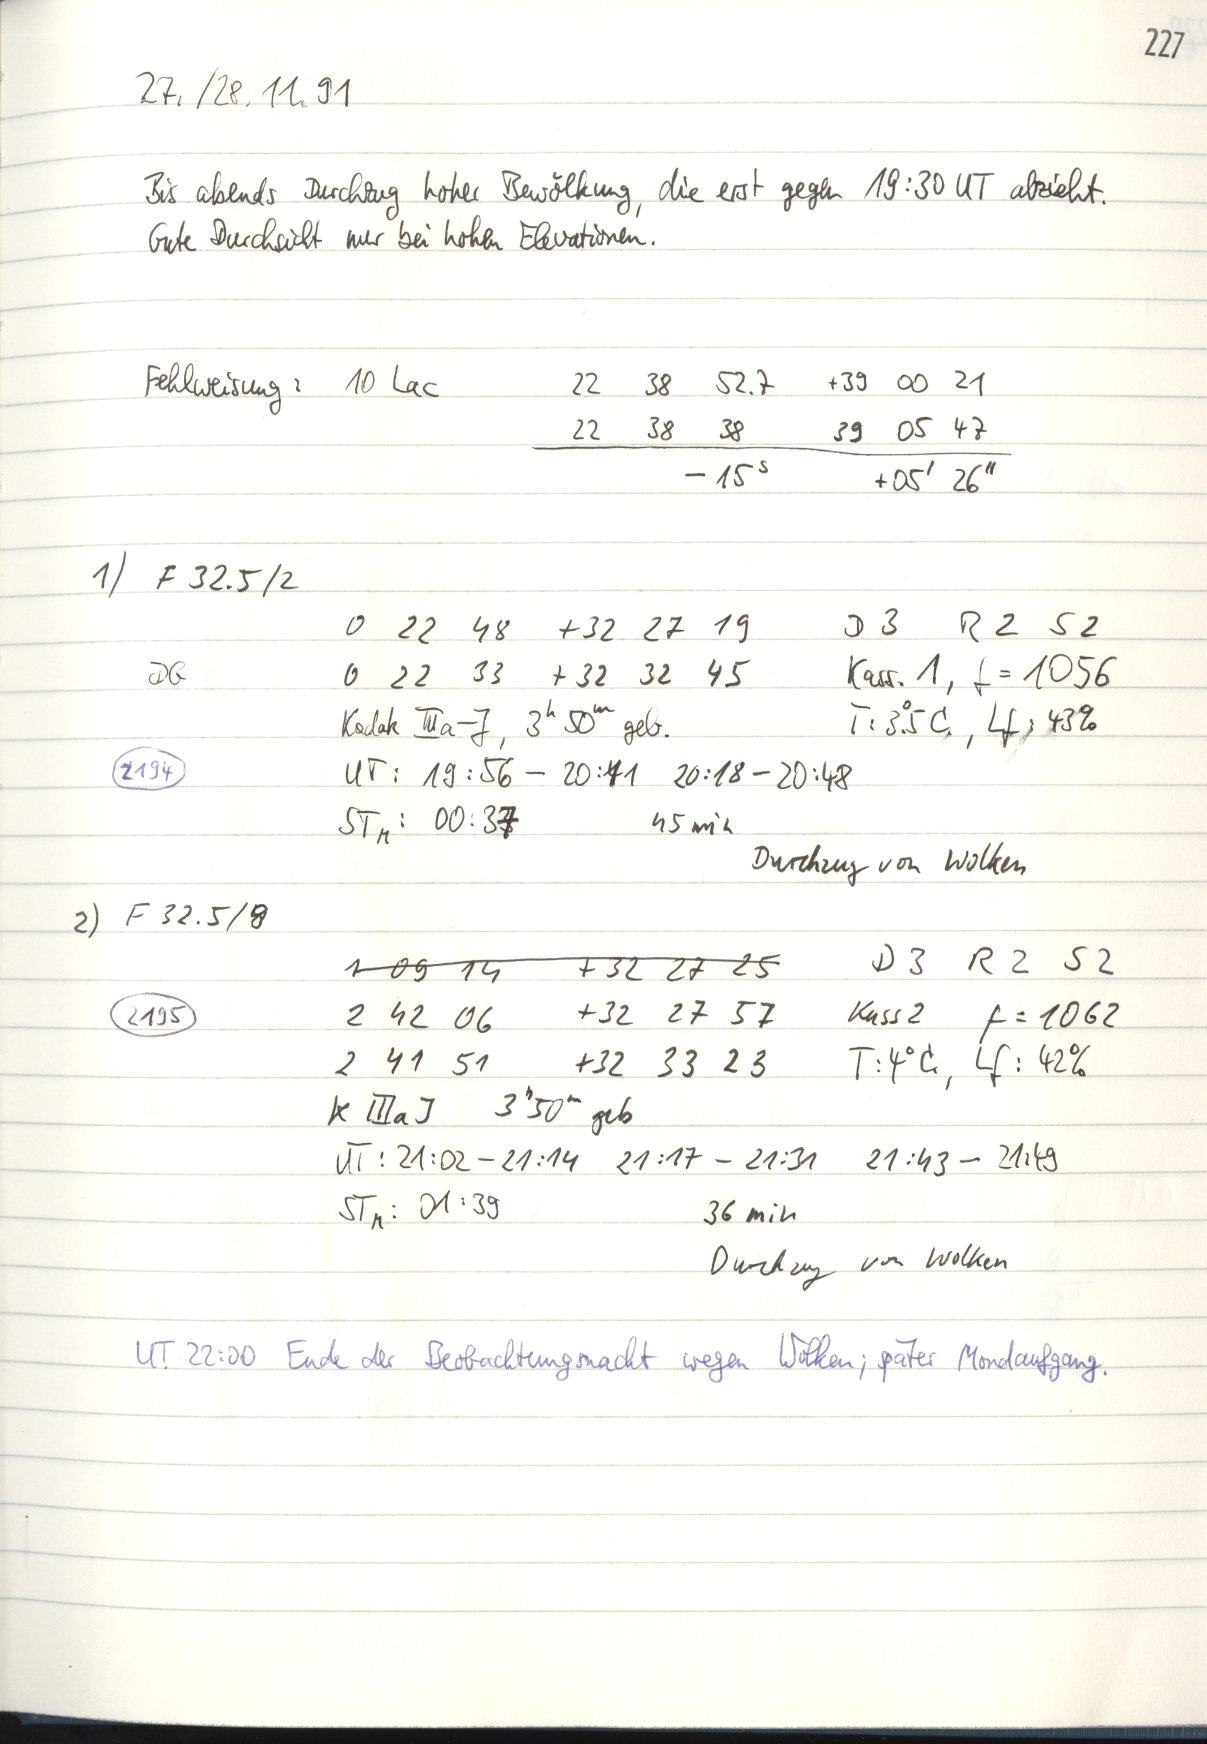 227
27./28.11.91
Bis abends Durchzug hoher Bewölkung, die erst gegen 19:30 UT abzieht.
Gute Durchsicht nur bei hohen Elevationen.
Fehlweisung: 10 Lac 22 38 52.7 +39 00 21
22 38 38 39 05 47
-15s +05' 26"
1) F 32.5/2
0 22 48 +32 27 19 D 3 R 2 S 2
DG 0 22 33 +32 32 45 Kass. 1, f = 1056
Kodak IIIa-J, 3h 50m geb. T: 3.5°C, Lf: 43%
2194 UT: 19:56 - 20:11 20:18 - 20:48
STM: 00:37 45 min
Durchzug von Wolken
2) F 32.5/8
1 09 14 +32 27 25 D 3 R 2 S 2
2195 2 42 06 +32 27 57 Kass 2 f = 1062
2 41 51 +32 33 23 T: 4°C, Lf: 42%
K IIIaJ 3h50m geb
UT: 21:02 - 21:14 21:17 - 21:31 21:43 - 21:49
STM: 01:39 36 min
Durchzug von Wolken
UT 22:00 Ende der Beobachtungsnacht wegen Wolken; später Mondaufgang.